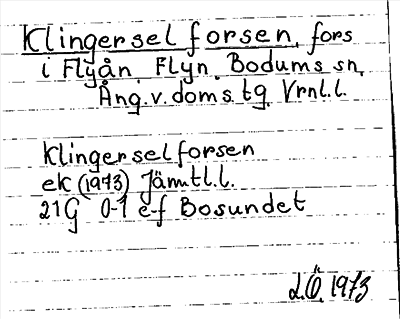 Klingerselforsen, fors
i Flyån, Flyn, Bodums sn,
Ång.v.doms.tg. Vrnl.l.
Klingerselforsen
ek (1973) Jämtl.l.
21G 0-1 e-f Bosundet
L.Ö. 1973